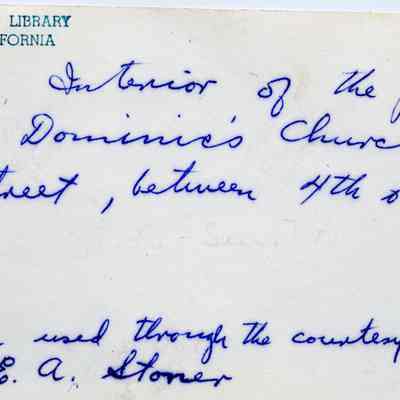 LIBRARY
FORNIA
Interior of the
Dominic's Churc
treet, between 4th
used through the courtesy
E. A. Stoner